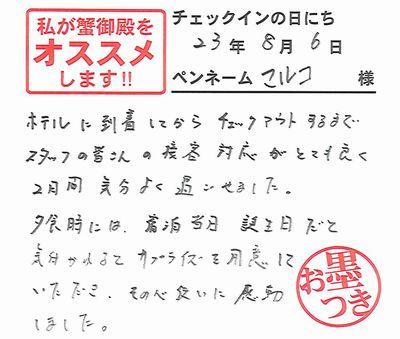 私が蟹御殿を
オススメ
します!!
チェックインの日にち
23年 8月 6日
ペンネーム マルコ 様
ホテルに到着してから チェックアウトするまで
スタッフの皆さんの接客 対応がとても良く
2日間 気分よく過ごせました。
夕食時には、宿泊当日 誕生日だと
気分かれるて サプライズを用意して
いただき、その心使いに感動
しました。
お墨つき